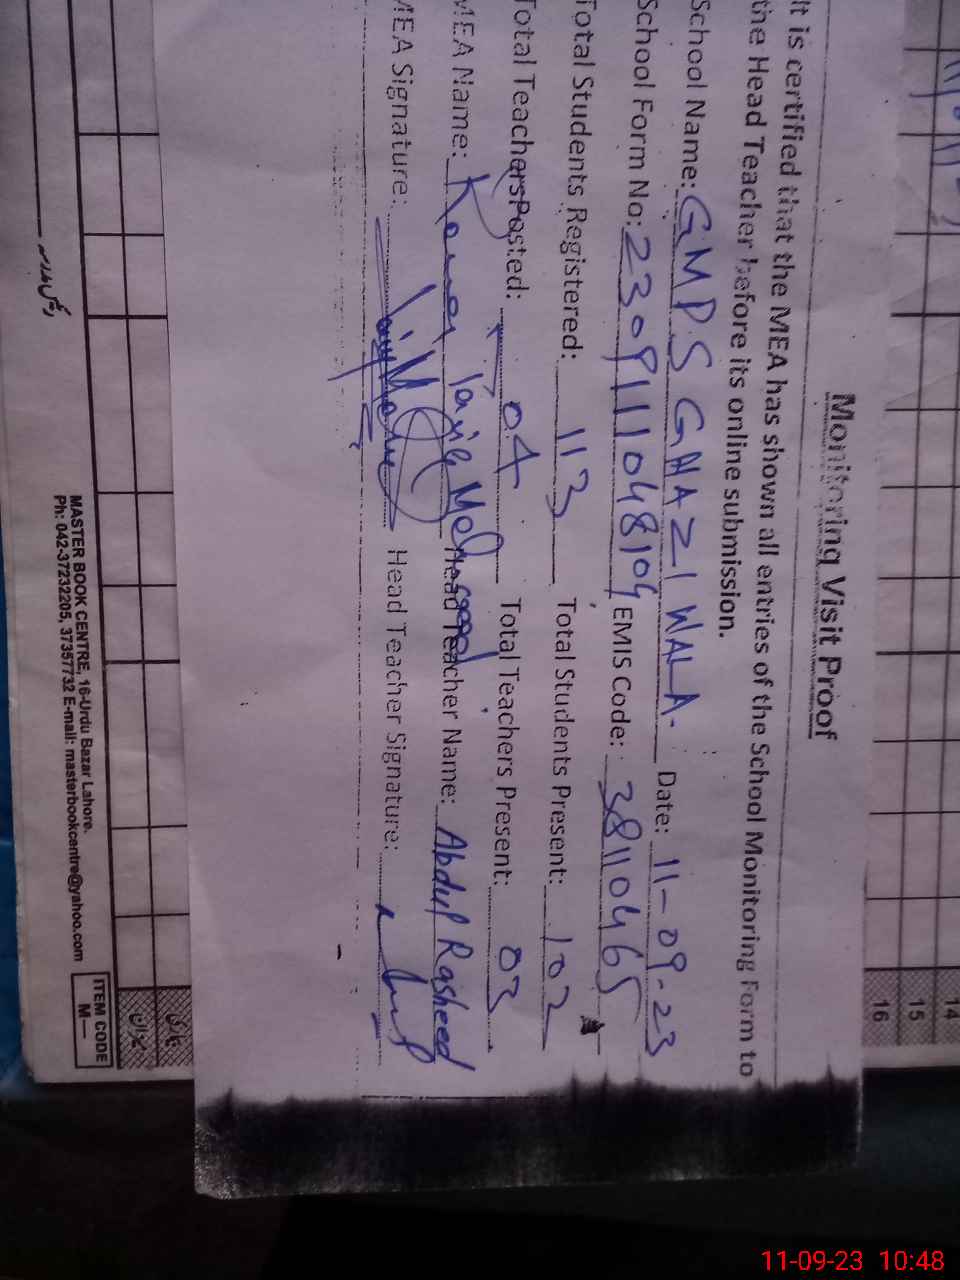 Monitoring Visit Proof
It is certified that the MEA has shown all entries of the School Monitoring Form to
the Head Teacher before its online submission.
School Name: GMPS GHAZI WALA. Date: 11-09-23
School Form No: 2309111048104 EMIS Code: 38110465
Total Students Registered: 113 Total Students Present: 102
Total Teachers Posted: 04 Total Teachers Present: 03
MEA Name: Tariq Mehmood Head Teacher Name: Abdul Rasheed
MEA Signature: Head Teacher Signature:
14
15
16
میزان
MASTER BOOK CENTRE, 16-Urdu Bazar Lahore.
Ph: 042-37232205, 37357732 E-mail: masterbookcentre@yahoo.com
ITEM CODE
M—
11-09-23 10:48